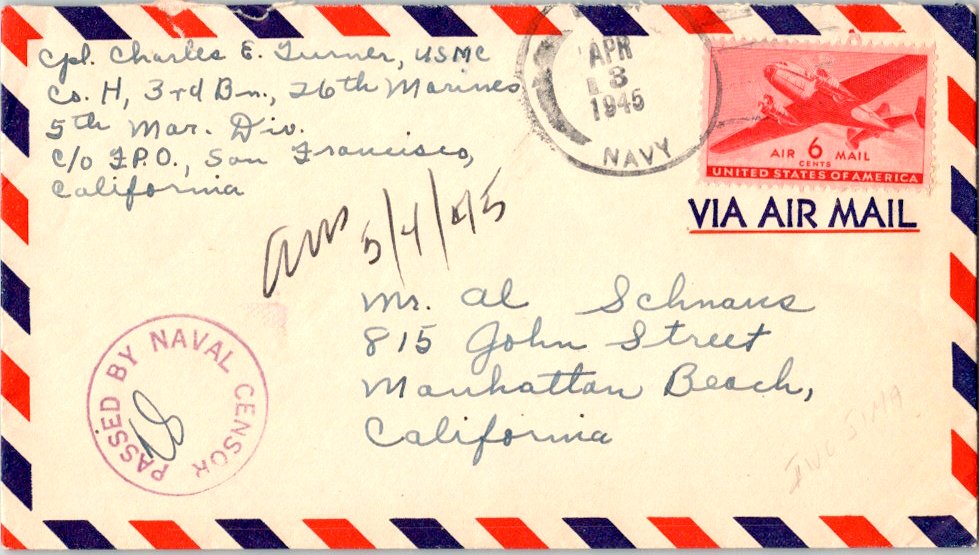 Cpl. Charles E. Turner, USMC
Co. H, 3rd Bn., 26th Marines
5th Mar. Div.
c/o F.P.O., San Francisco,
California
APR
3
1945
NAVY
AIR 6 MAIL
CENTS
UNITED STATES OF AMERICA
VIA AIR MAIL
ans 5/4/45
Mr. Al Schnaus
815 John Street
Manhattan Beach,
California
PASSED BY NAVAL CENSOR
IWO JIMA